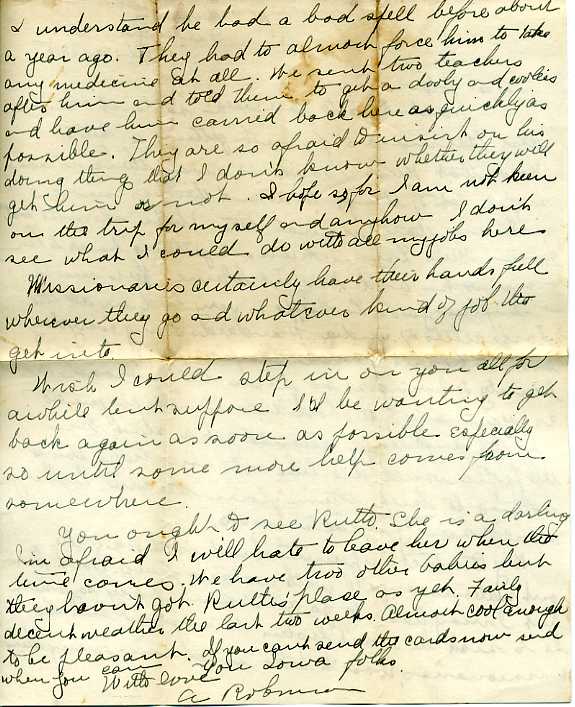 I understand he had a bad spell before about
a year ago. They had to almost force him to take
any medicine at all. We sent two teachers
after him and told them to get a dooly and coolies
and have him carried back here as quickly as
possible. They are so afraid to insist on his
doing things that I don't know whether they will
get him or not. I hope so for I am not keen
on the trip for myself and anyhow I don't
see what I could do with all my jobs here
Missionaries certainly have their hands full
wherever they go and whatever kind of job they
get into.
Wish I could step in on you all for
awhile but suppose I'd be wanting to get
back again as soon as possible especially
so until some more help comes from
somewhere.
You ought to see Ruth. She is a darling
I'm afraid I will hate to leave her when the
time comes. We have two other babies but
they havn't got Ruth's place as yet. Fairly
decent weather the last two weeks. Almost cool enough
to be pleasant. If you can't send the cards now send
when you can
With love You Iowa folks.
A Robinson